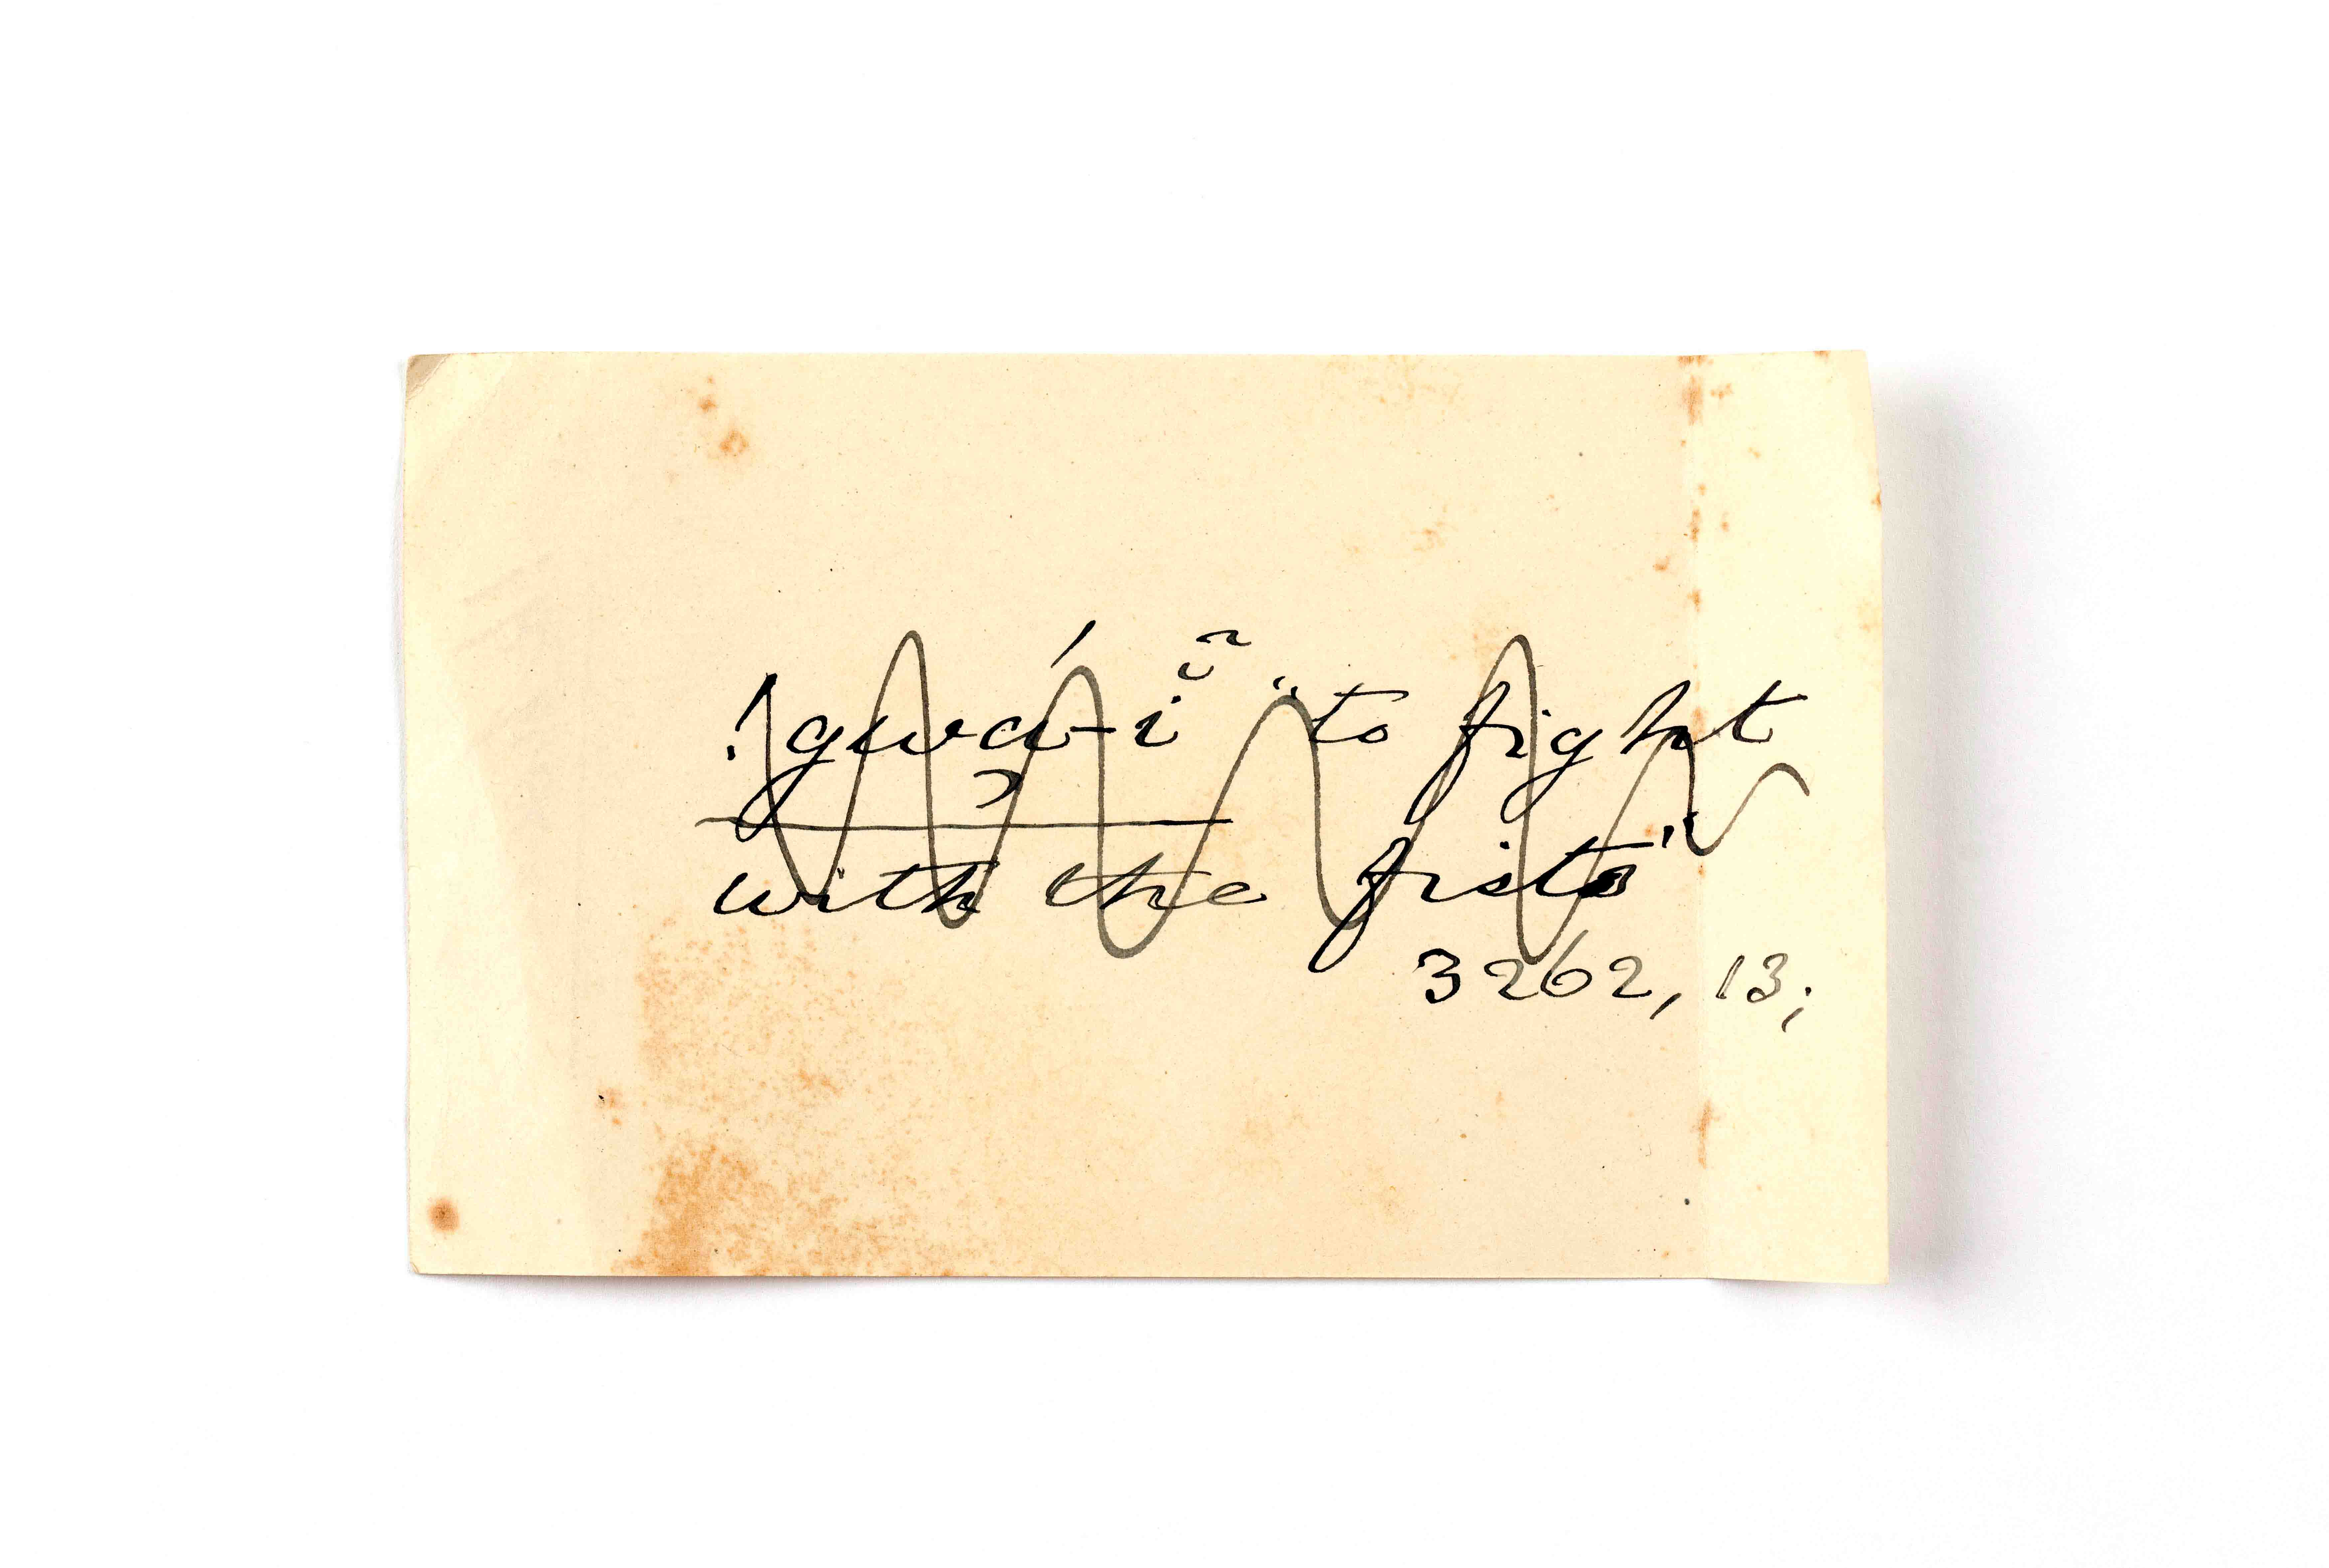 !gwá̹-ĭ̃ "to fight
with the fists"
3262, 13;